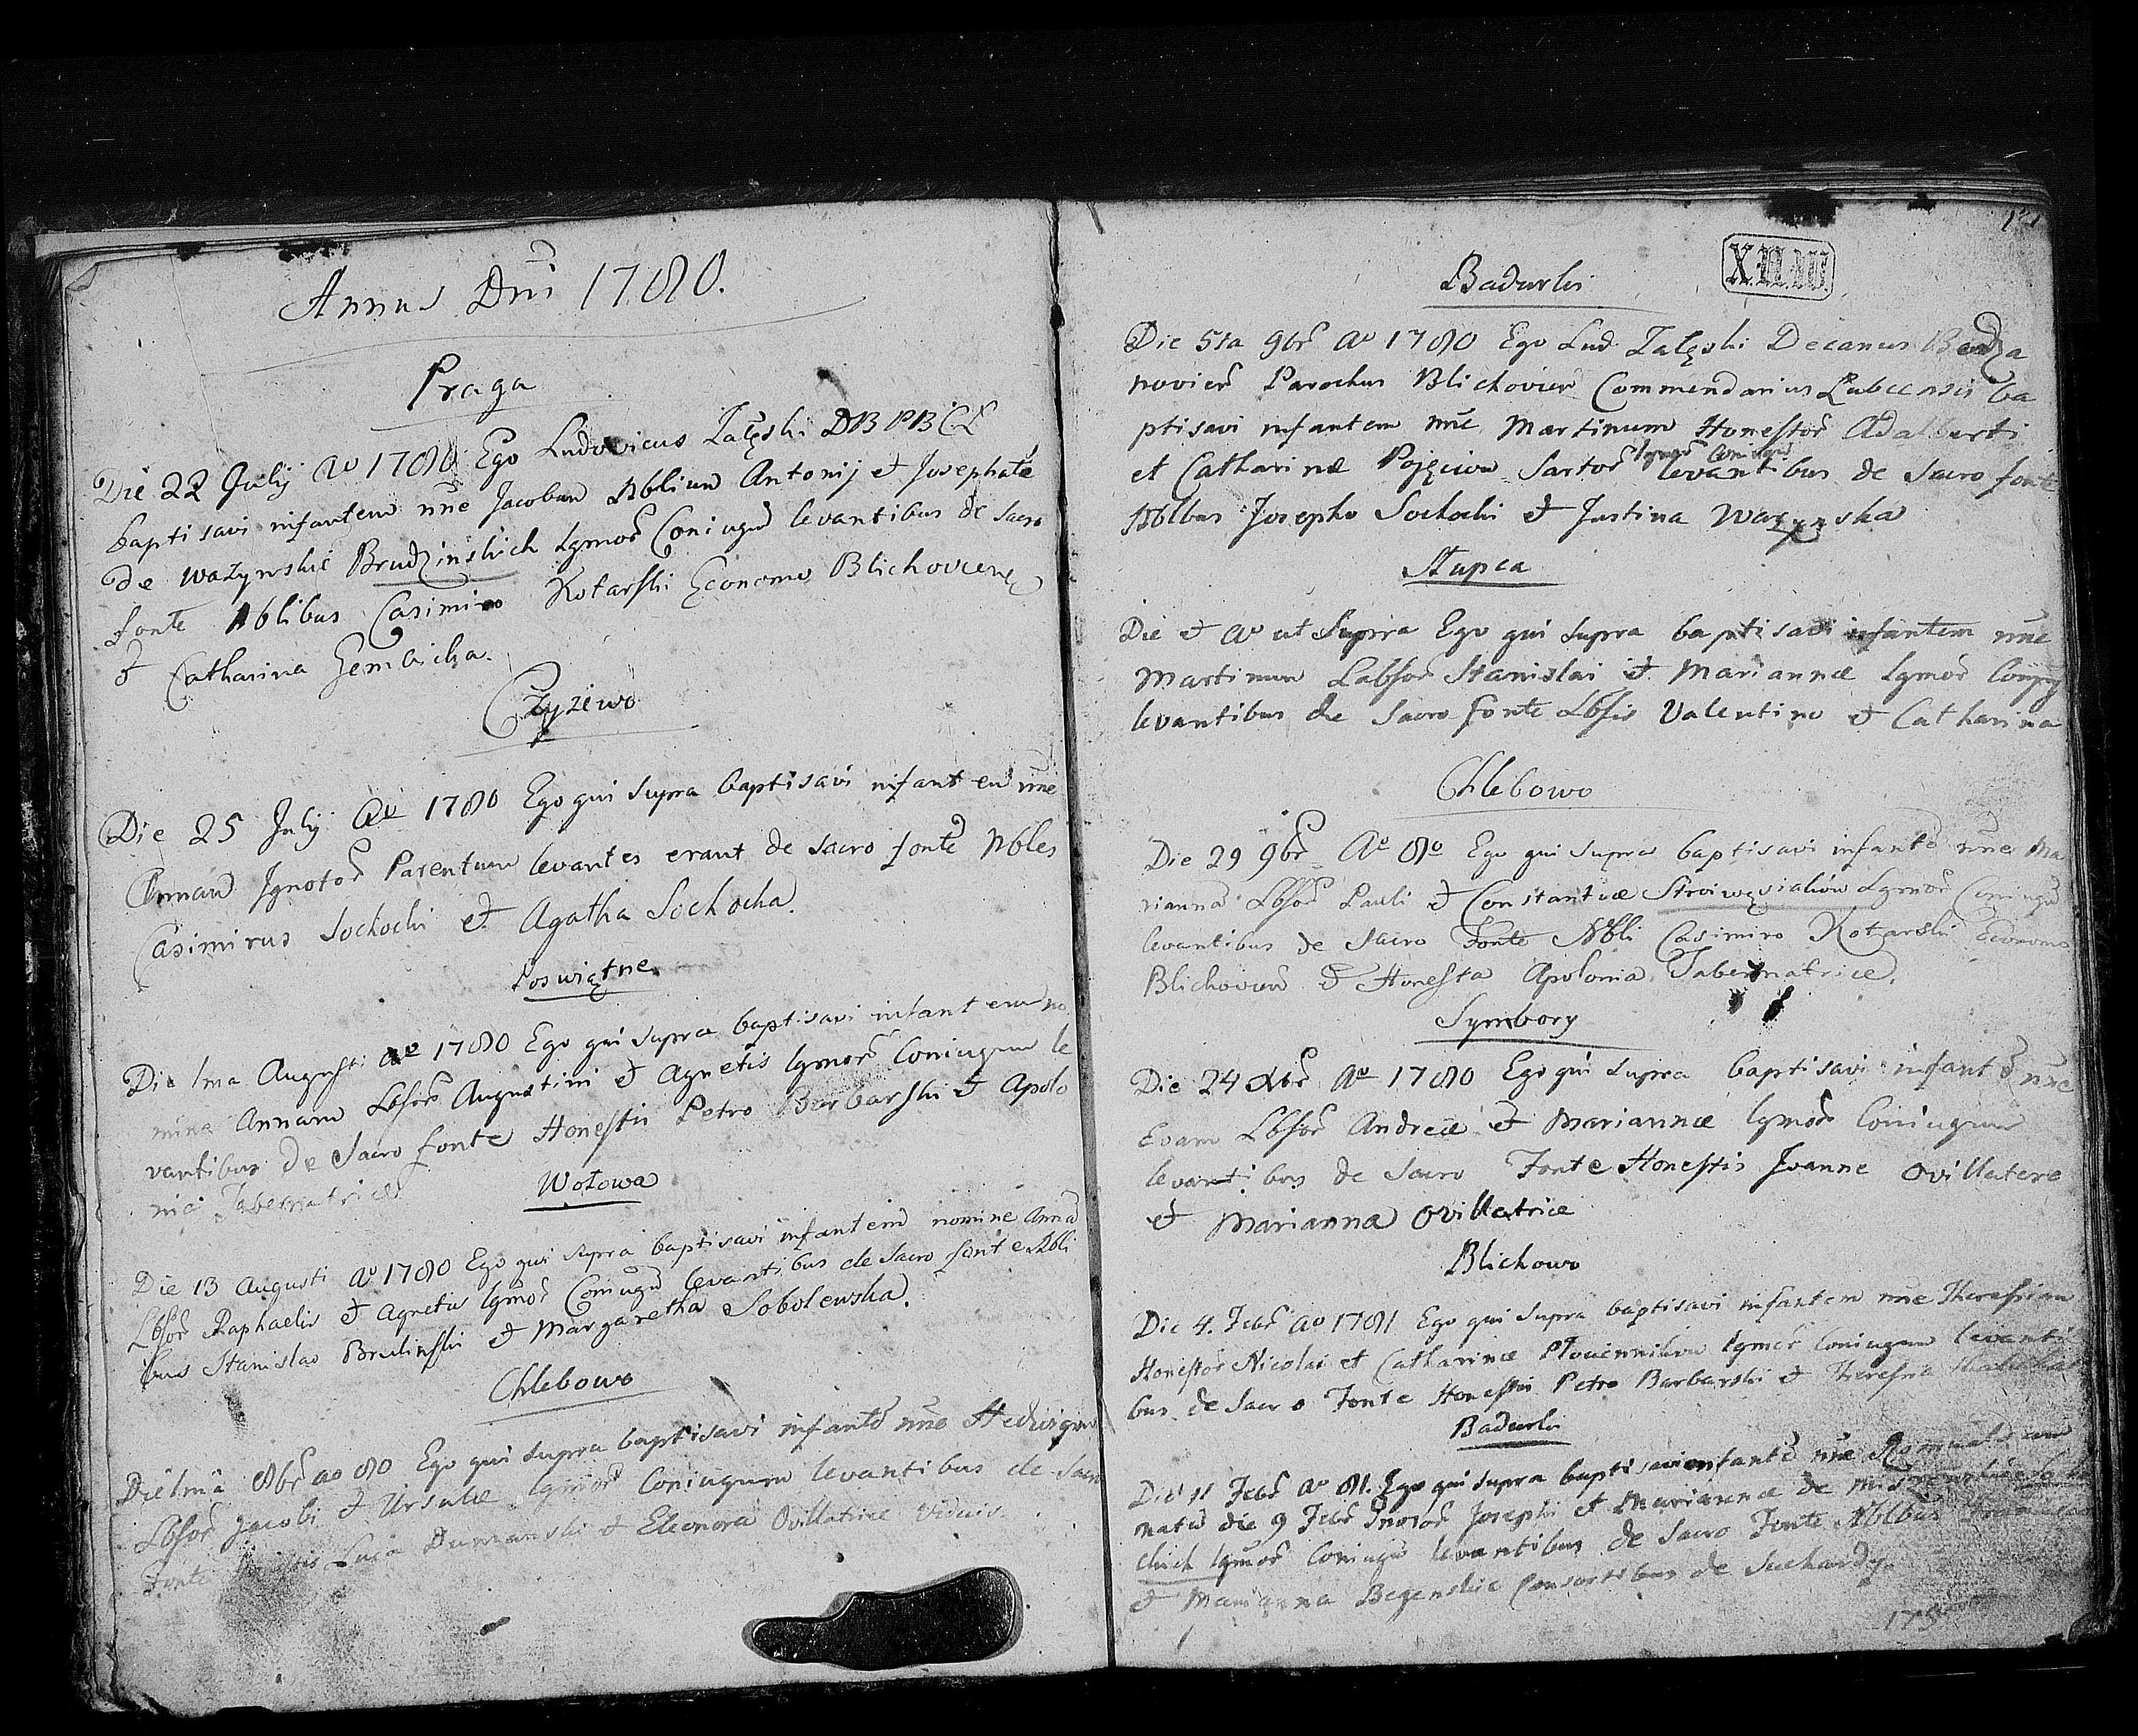 Annus Dni 1780.
Praga
Die 22 July Ao 1780 Ego Ludovicus Zalęski DBPBCL
baptisavi infantem nne Jacobum Nblium Antonij et Josephatæ
de Ważynskie Brudzinskich Lgmor Coniugu levantibus de Sacro
fonte Nblibus Casimiro Kotarski Economo Blichoviens
et Catharina Gembicka.
Czyżewo
Die 25 July Ao 1780 Ego qui supra baptisavi infantem nne
Annam Jgnotor Parentum levantes erant de sacro fonte Nbles
Casimirus Sochocki et Agatha Sochocka.
Poswiątne
Die 1ma Augusti Ao 1780 Ego qui supra baptisavi infantem no
mine Annam Lbsor Augustini et Agnetis lgmor Coniugum le
vantibus de Sacro fonte Honestis Petro Barbarski et Apolo
nia Tabernatrice
Wołowa
Die 13 Augusti Ao 1780 Ego qui supra baptisavi infantem nomine Anna
Lbsor Raphaelis et Agnetis lgmor Coniugu levantibus de Sacro fonte Nbli
bus Stanislao Brulinski et Margaretha Sobolewska.
Chlebowo
Die 1ma 8br ao 80 Ego qui supra baptisavi infante nne Hedvigim
Lbsor Jacobi et Ursulæ lgmor Coniugum levantibus de Sacro
Fonte Luca Dumanski et Eleonora Ovillatrice Viduis.
Badurki
Die 5ta 9br Ao 1780 Ego Lud Zalęski Decanus Bodza
novien Parochus Blichovien Commendarius Lubeensis ba
ptisavi infantem nne Martinum Honestor Adalberti
lgmor Coniugu
et Catharinæ Pojęciow Sartor levantibus de Sacro fonte
Nblbus Josepho Sochocki et Justina Wazynska
Słupca
Die et Ao ut Supra Ego qui supra baptisavi infantem nne
Martinum Labsor Stanislai et Mariannæ Lgmor Conjug
levantibus de Sacro fonte Lbsis Valentino et Catharina
Chlebowo
Die 29 9br Ao 80 Ego qui supra baptisavi infante nne Ma
rianna Lbsor Pauli et Constantiæ Lgmor Coniugu
levantibus de Sacro Fonte Nbli Casimiro Kotarski Economo
Blichovien et Honesta Apolonia Tabernatrice.
Symbory
Die 24 Xbr Ao 1780 Ego qui supra baptisavi infante nne
Evam Lbsor Andreæ et Mariannæ lgmor Coniugum
levantibus de Sacro Fonte Honestis Joanne Ovillatore
et Marianna Ovillatrice
Blichowo
Die 4. Febr Ao 1781 Ego qui supra baptisavi infantem nne Theresiam
Honestor Nicolai et Catharinæ lgmor Coniugum levanti
bus de Sacro Fonte Honestis Petro Barbarski et Theresia
Badurki
Die 11 Febr Ao 81. Ego qui supra baptisavi infante nne Romualdum
natu die 9 Febr Josephi et Mariannæ de
chich lgmor Coniugu levantibus de Sacro Fonte Nblbus
et Marianna Begenskie Consortibus de Suchardy.